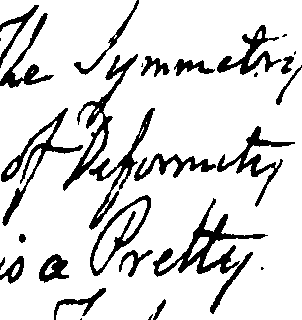 The Symmetry
of Deformity
is a Pretty